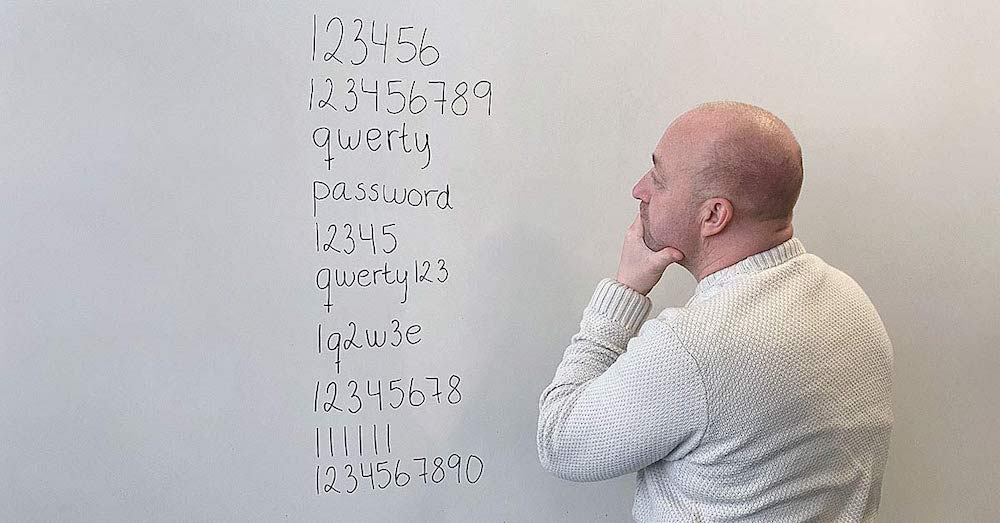 123456
123456789
qwerty
password
12345
qwerty123
1q2w3e
12345678
111111
1234567890